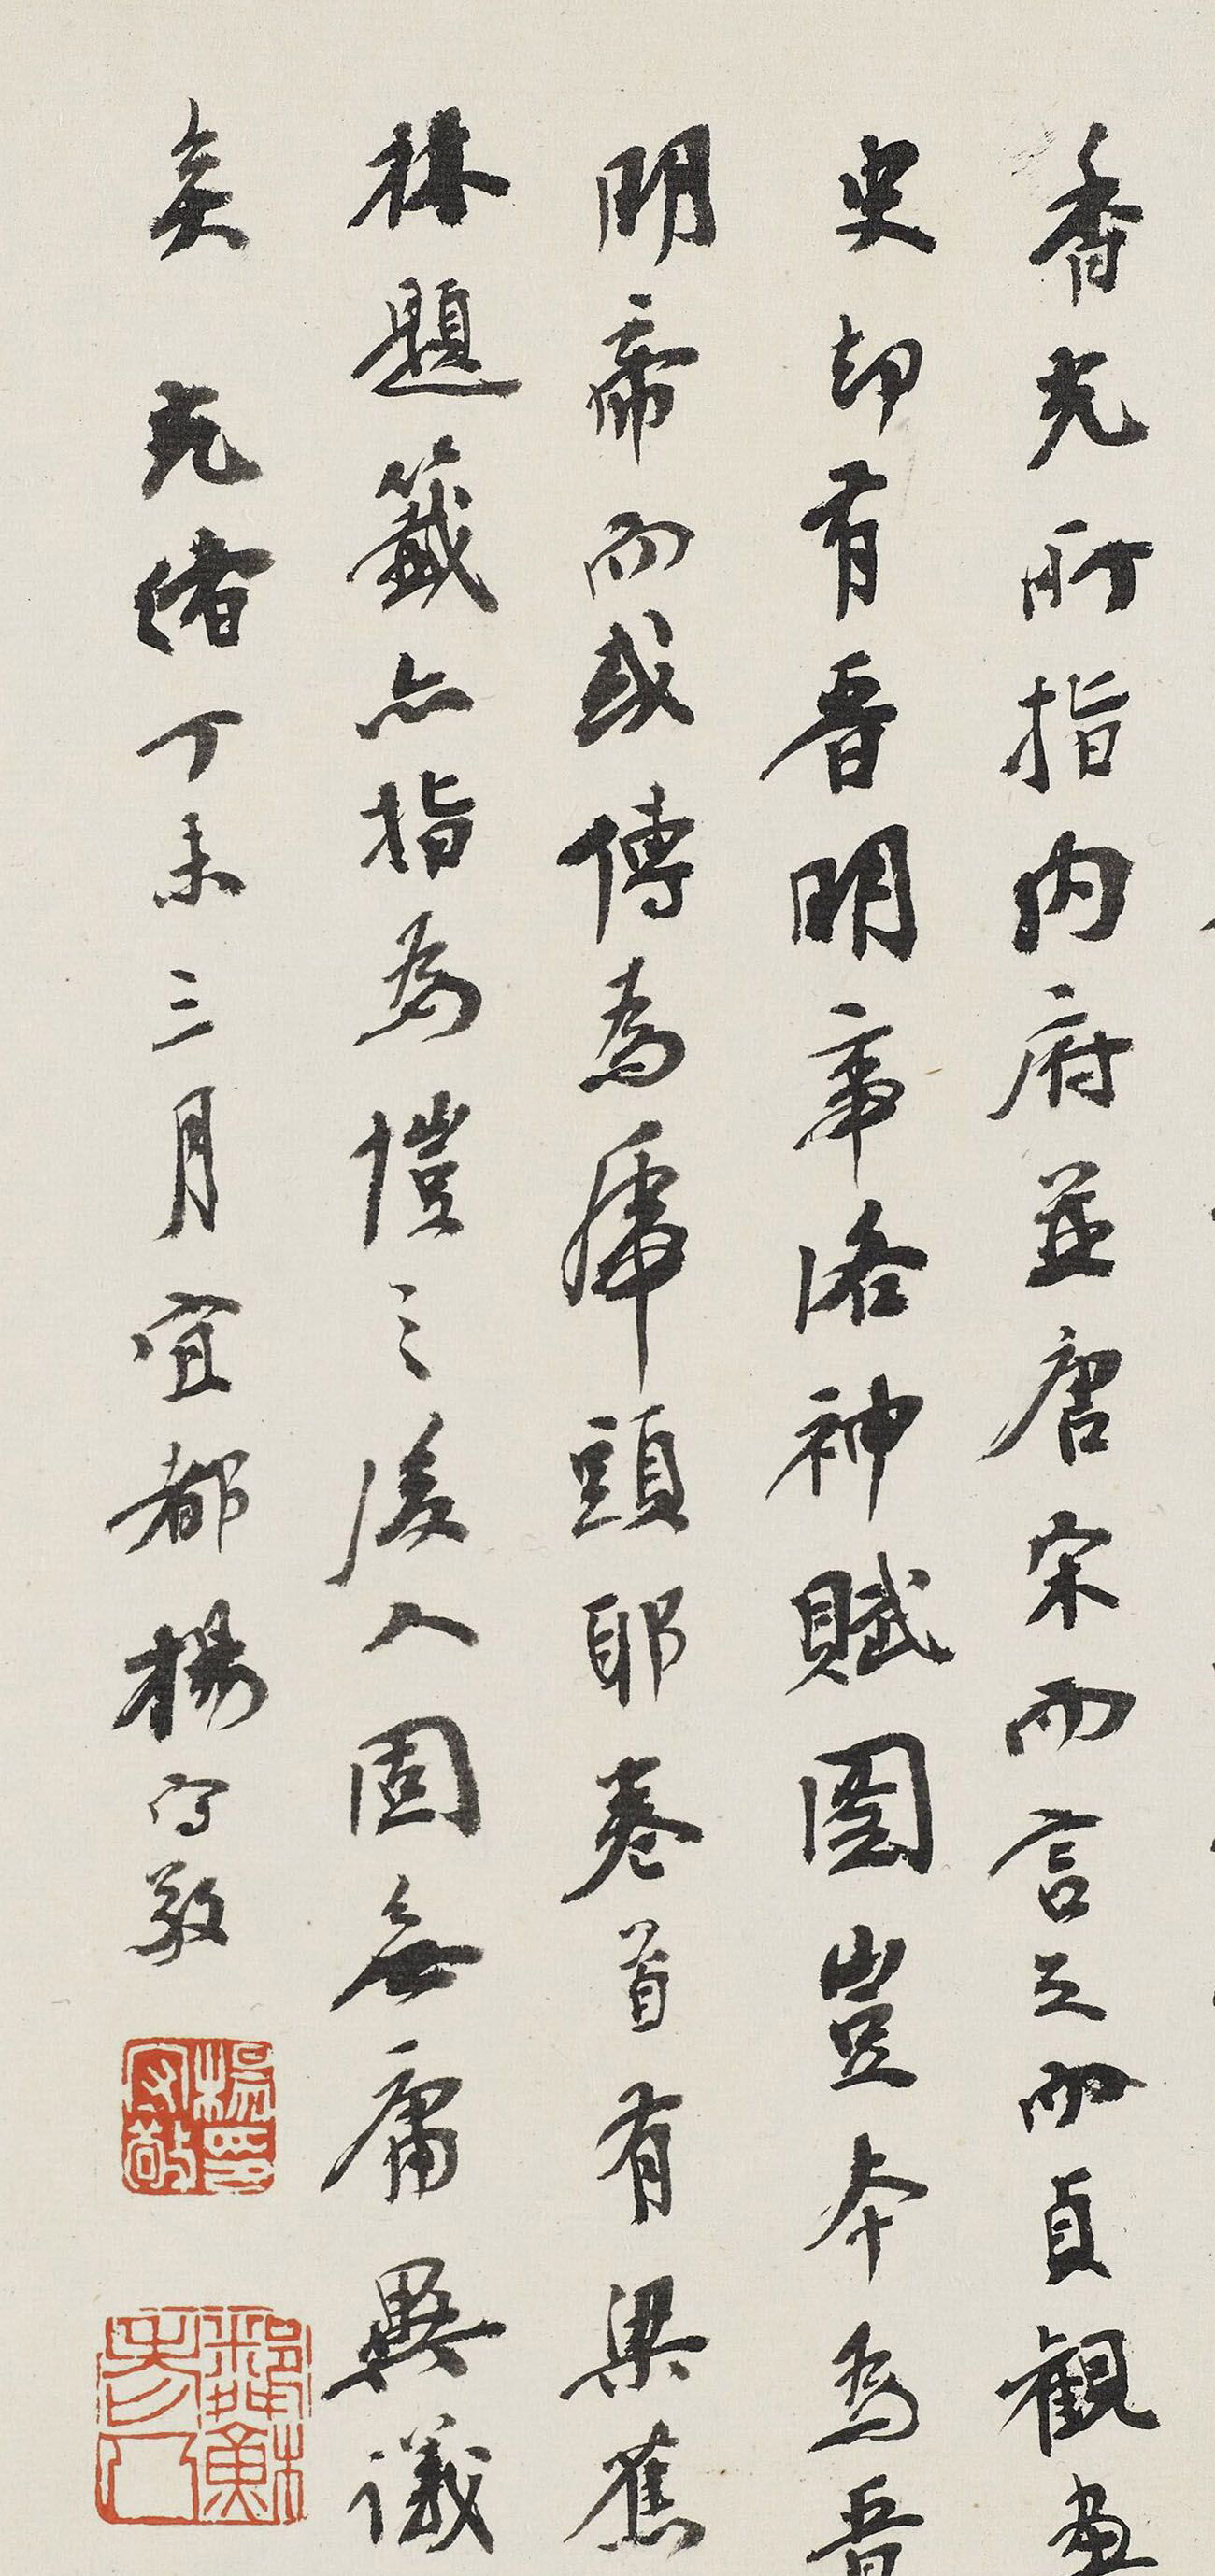 香光所指内府並唐宋而言之而貞觀畫
史却有晉明帝洛神賦圖豈本爲晉
明帝而或傳爲虎頭耶卷首有梁蕉
林題籤亦指爲愷之後人固無庸異議
矣 光緒丁未三月宜都楊守敬
楊印守敬
鄰蘇老人